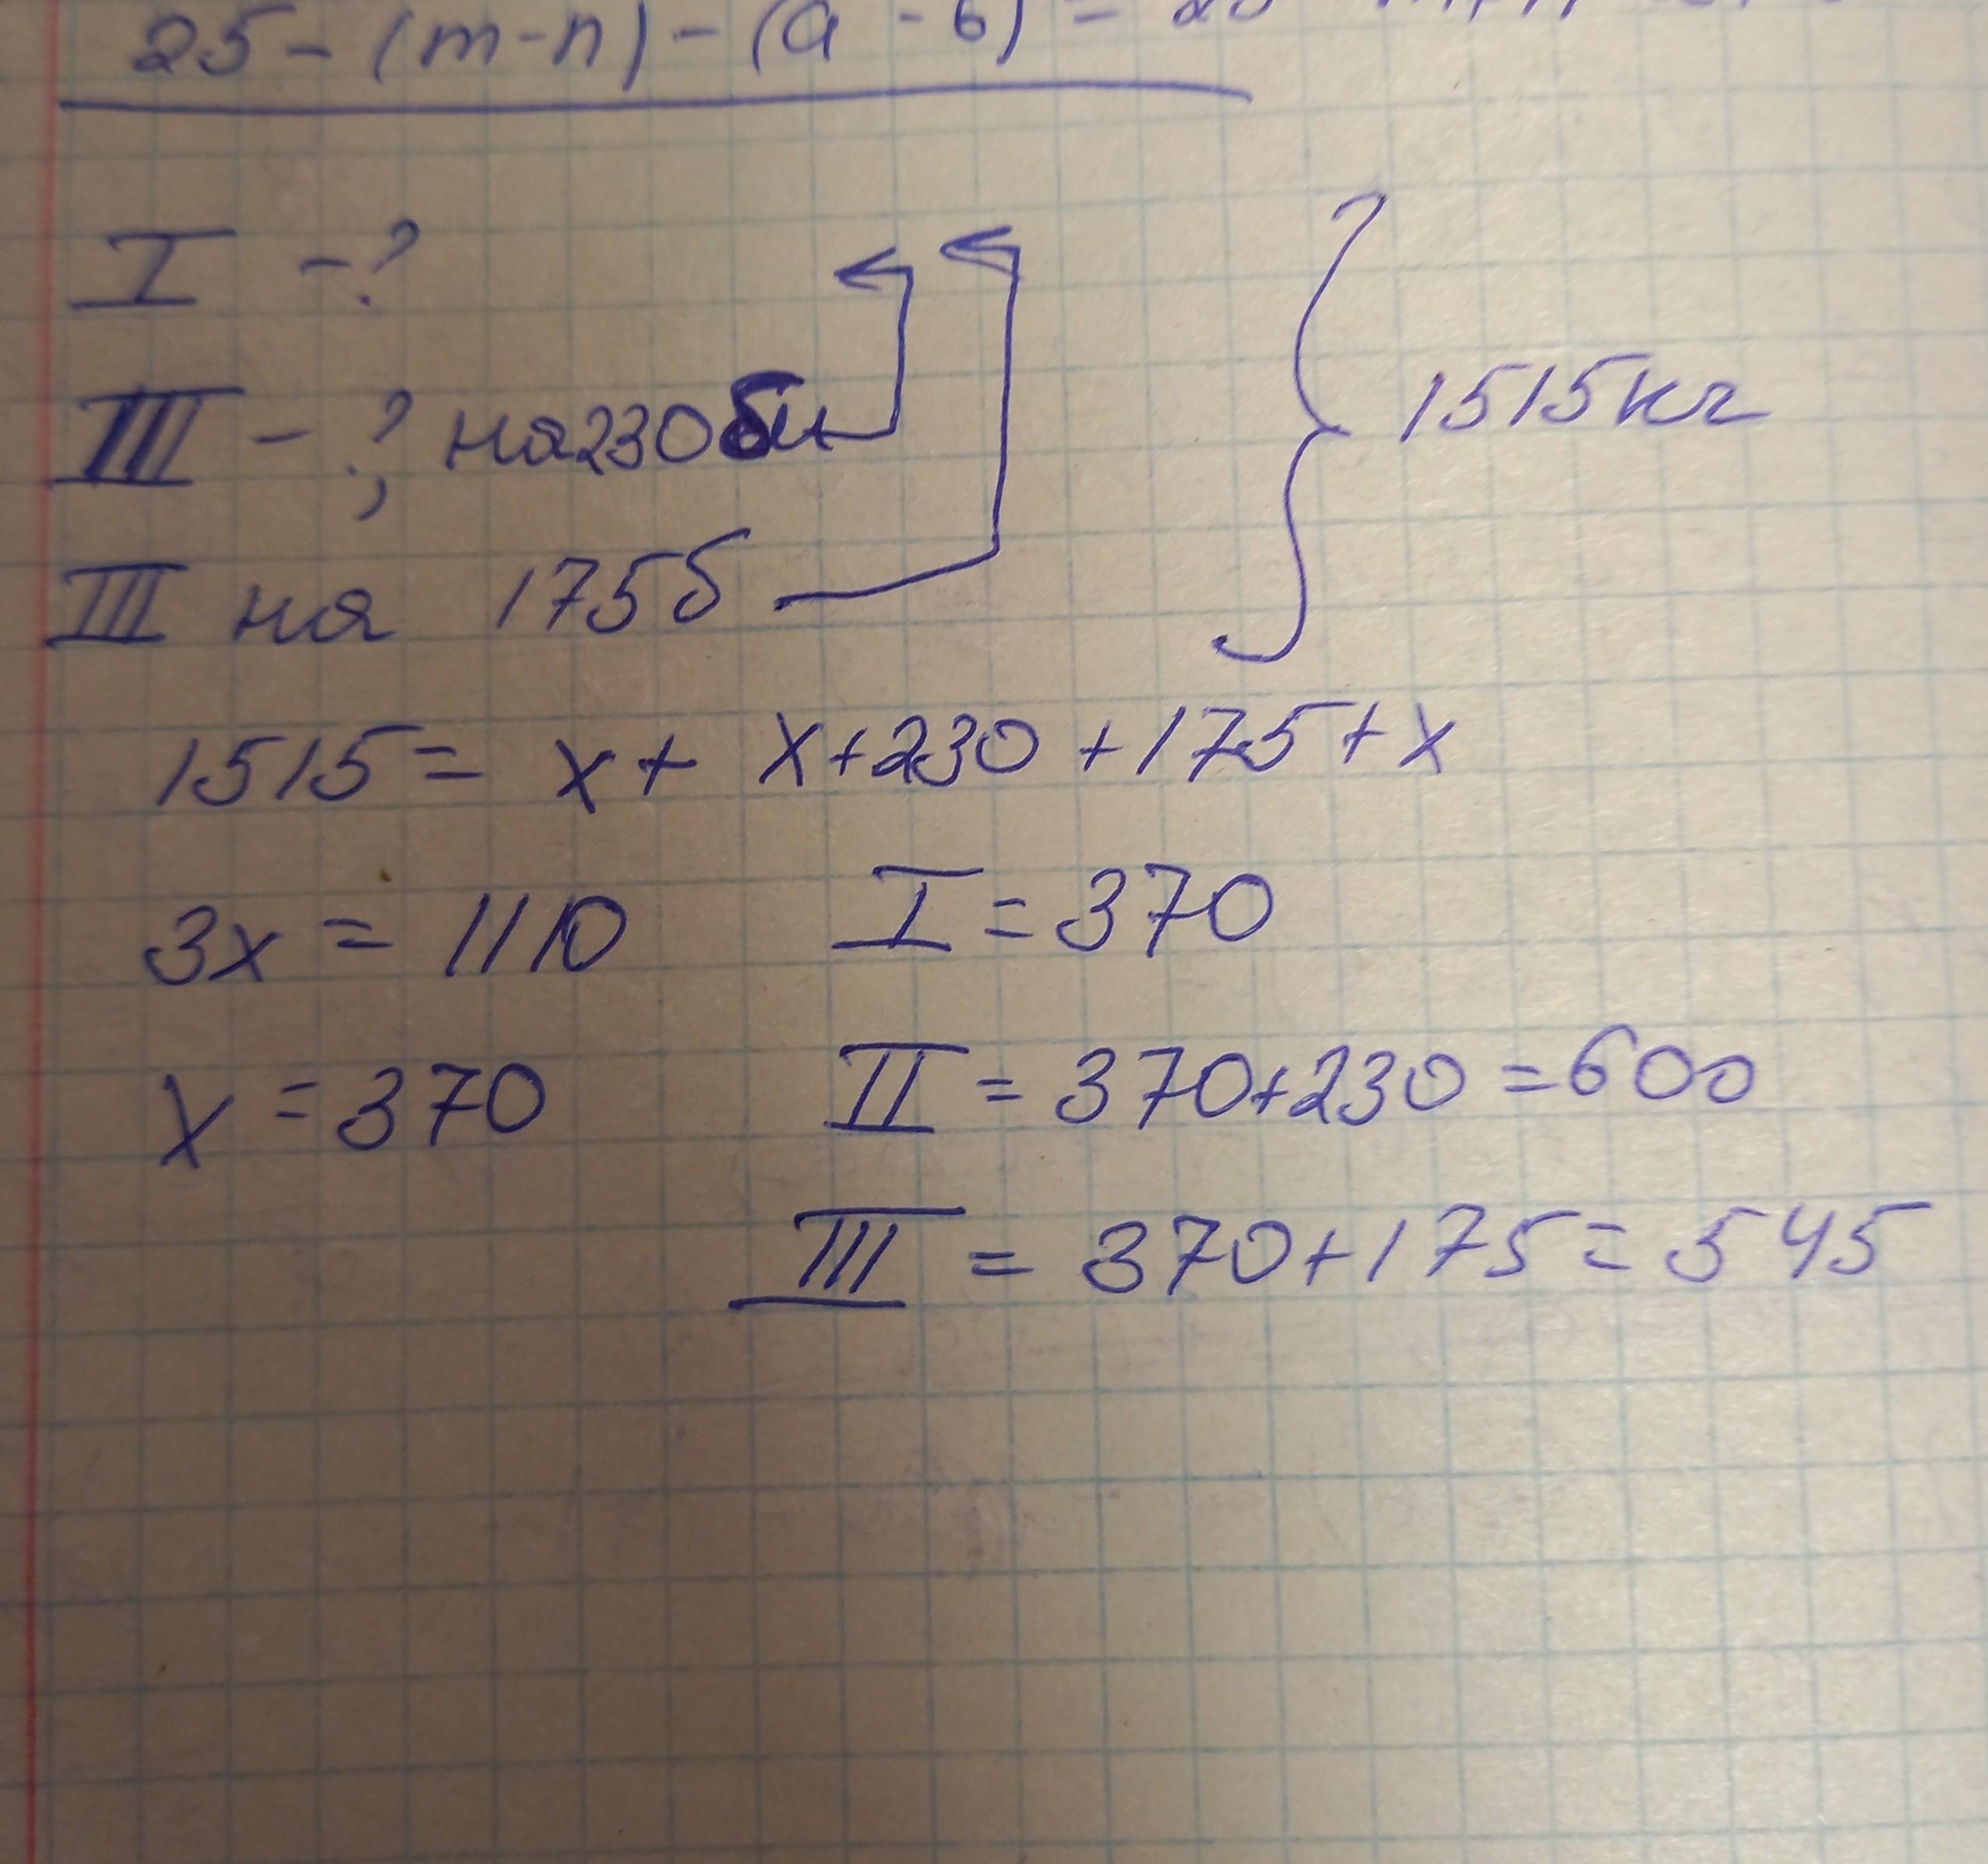 25 - (m - n) - (a - b) =
I - ?
III - ?, на 230 би
III на 175 б
1515 кг
1515 = x + x + 230 + 175 + x
3x = 1110 I = 370
x = 370 II = 370 + 230 = 600
III = 370 + 175 = 545